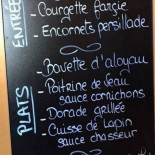 ENTRÉE
- Courgette farcie
- Encornets persillade
PLATS
- Bavette d'aloyau
- Poitrine de veau
sauce cornichons
- Dorade grillée
- Cuisse de lapin
sauce chasseur